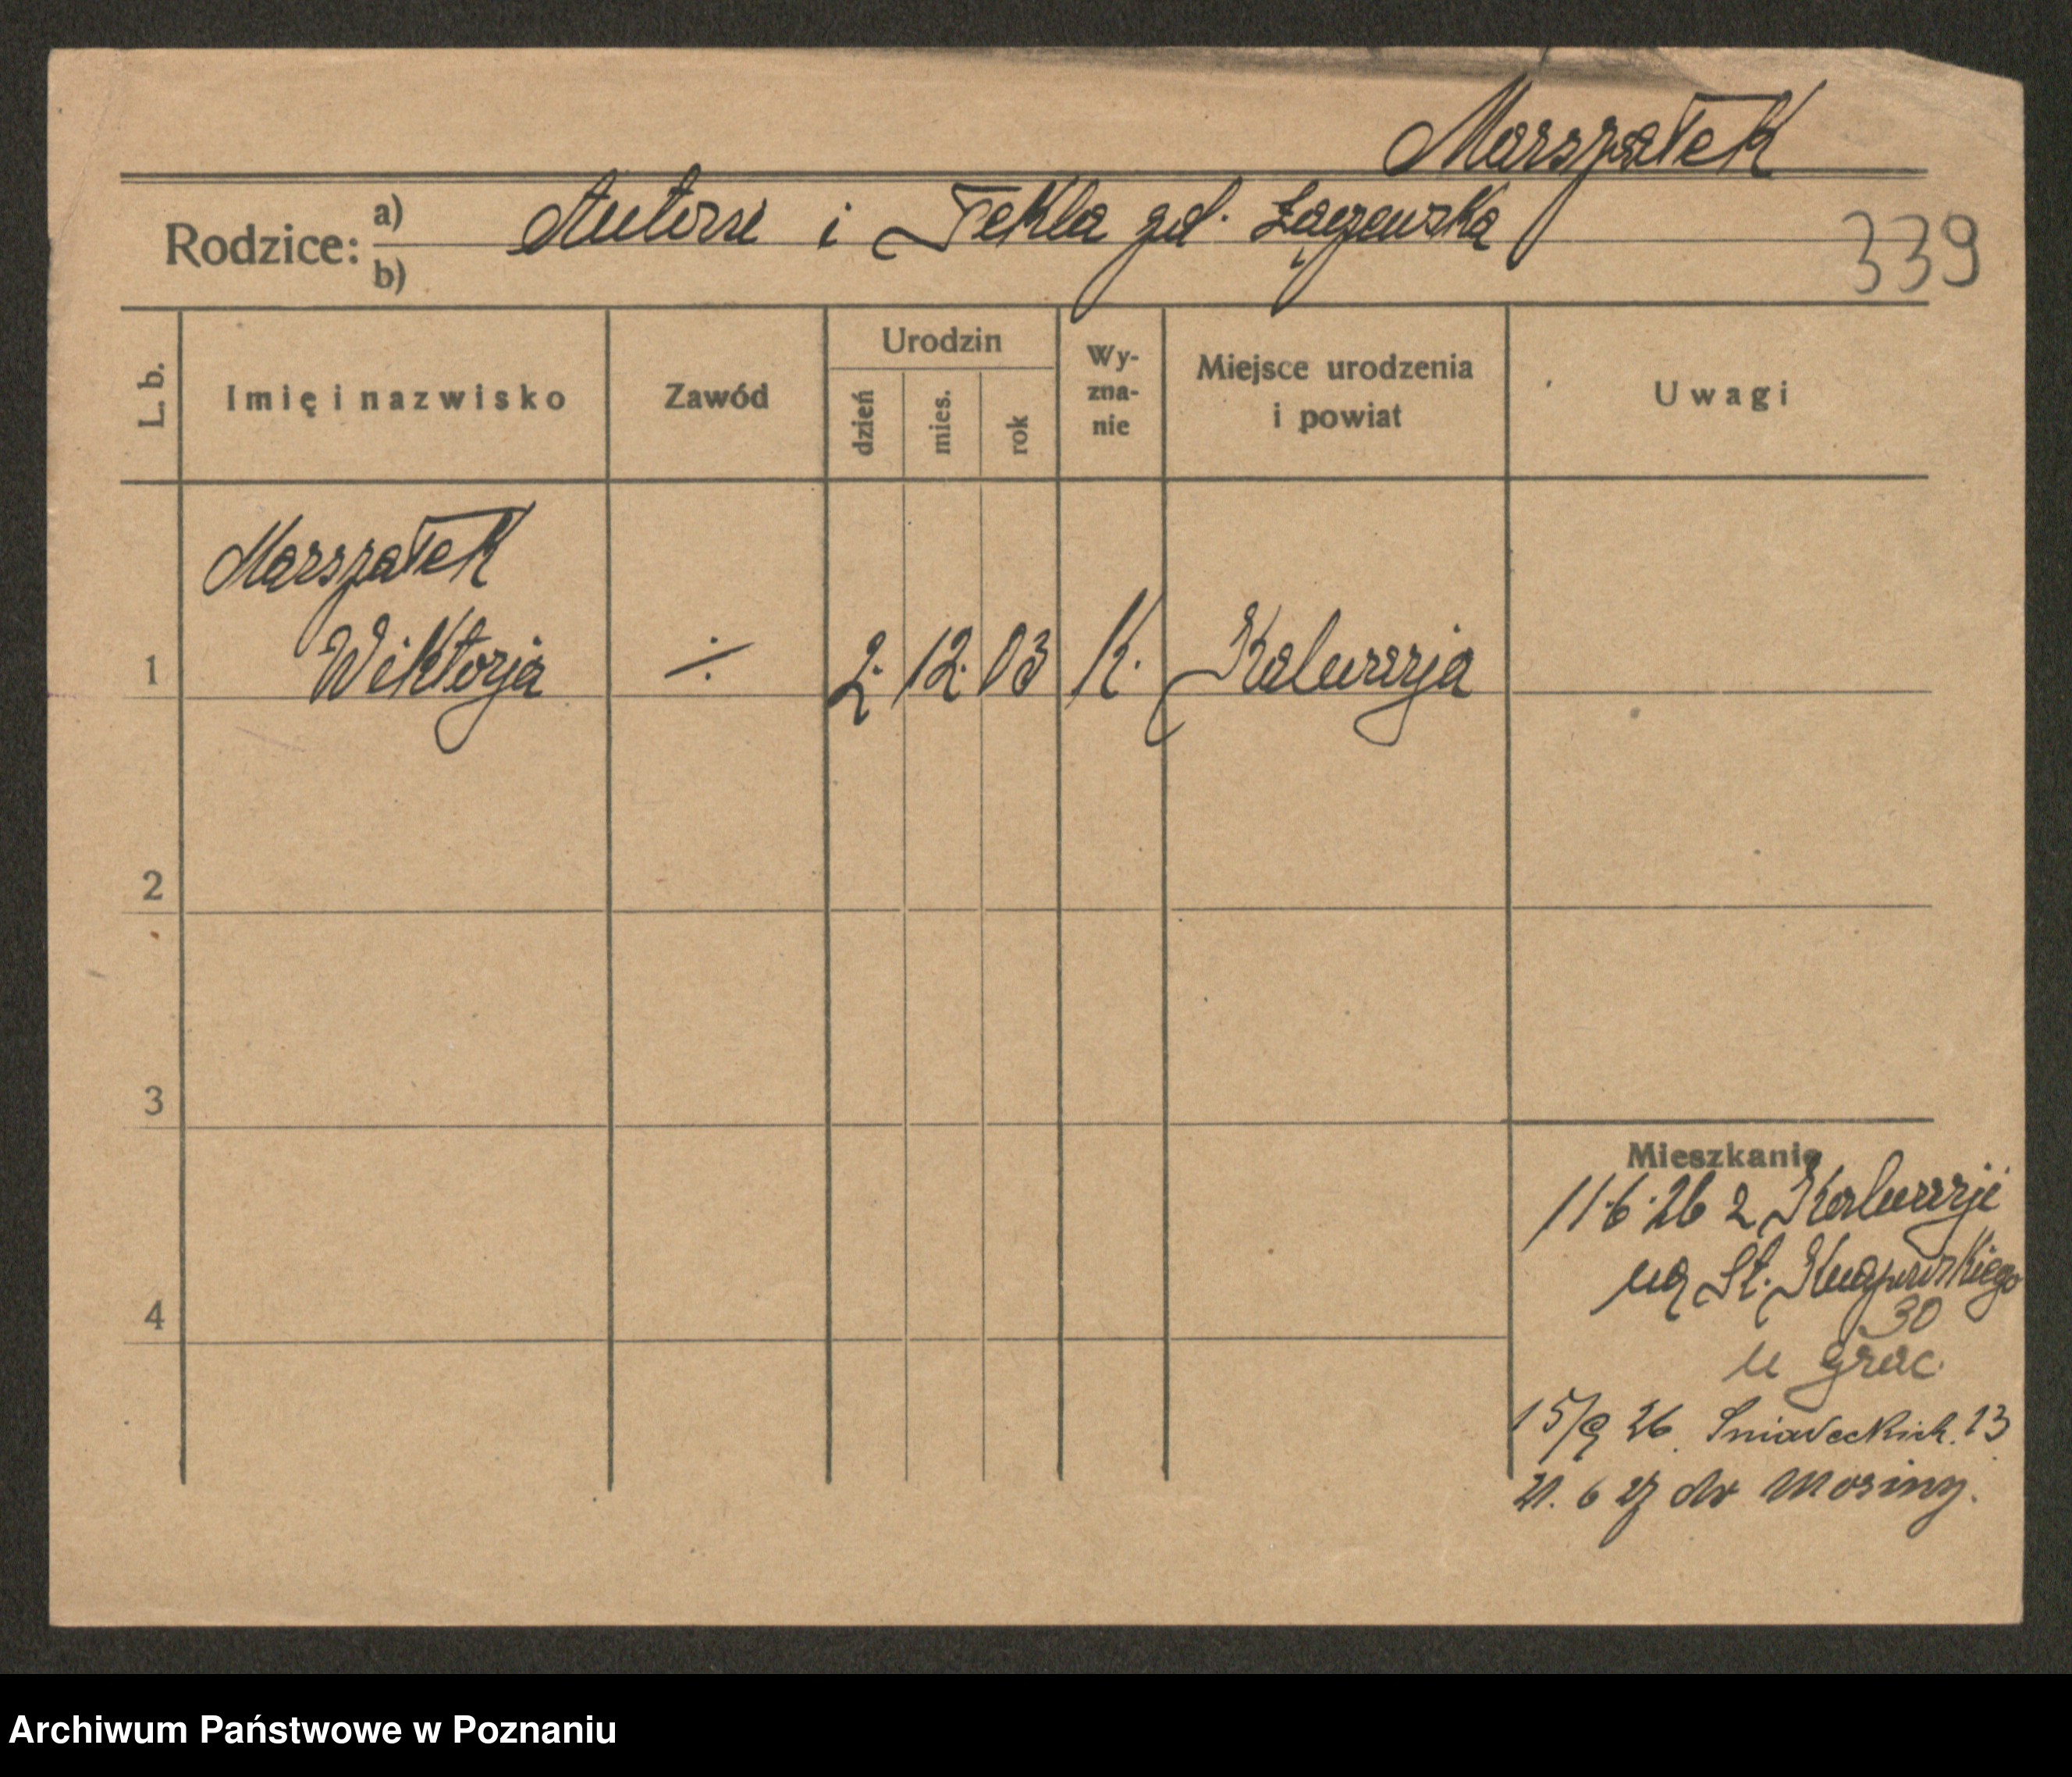 Marszałek
Rodzice: a) Antoni i Tekla zd. Łączewska
b)
339
L. b. Imię i nazwisko Zawód Urodzin dzień mies. rok Wy-zna-nie Miejsce urodzenia i powiat Uwagi
Marszałek
1 Wiktorja ÷ 2. 12. 03 K. Kalwarja
2
3
Mieszkanie
11.6.26 z Kalwarji
na St. Knapowskiego
4
30
u Grac.
15/9 26. Śniadeckich. 23
21. 6 27 do Mosiny.
Archiwum Państwowe w Poznaniu